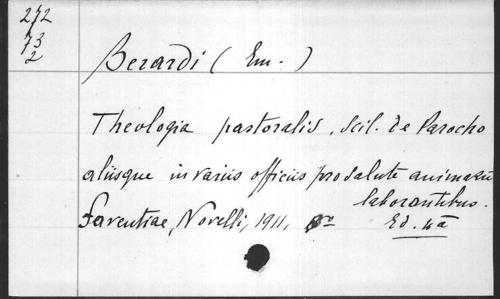 272
73
2
Berardi ( Em. )
Theologia pastoralis, Scil. de Parocho
aliisque in variis officiis pro salute animarū
laborantibus.
Faventiae, Novelli, 1911, 8º Ed. 4ª